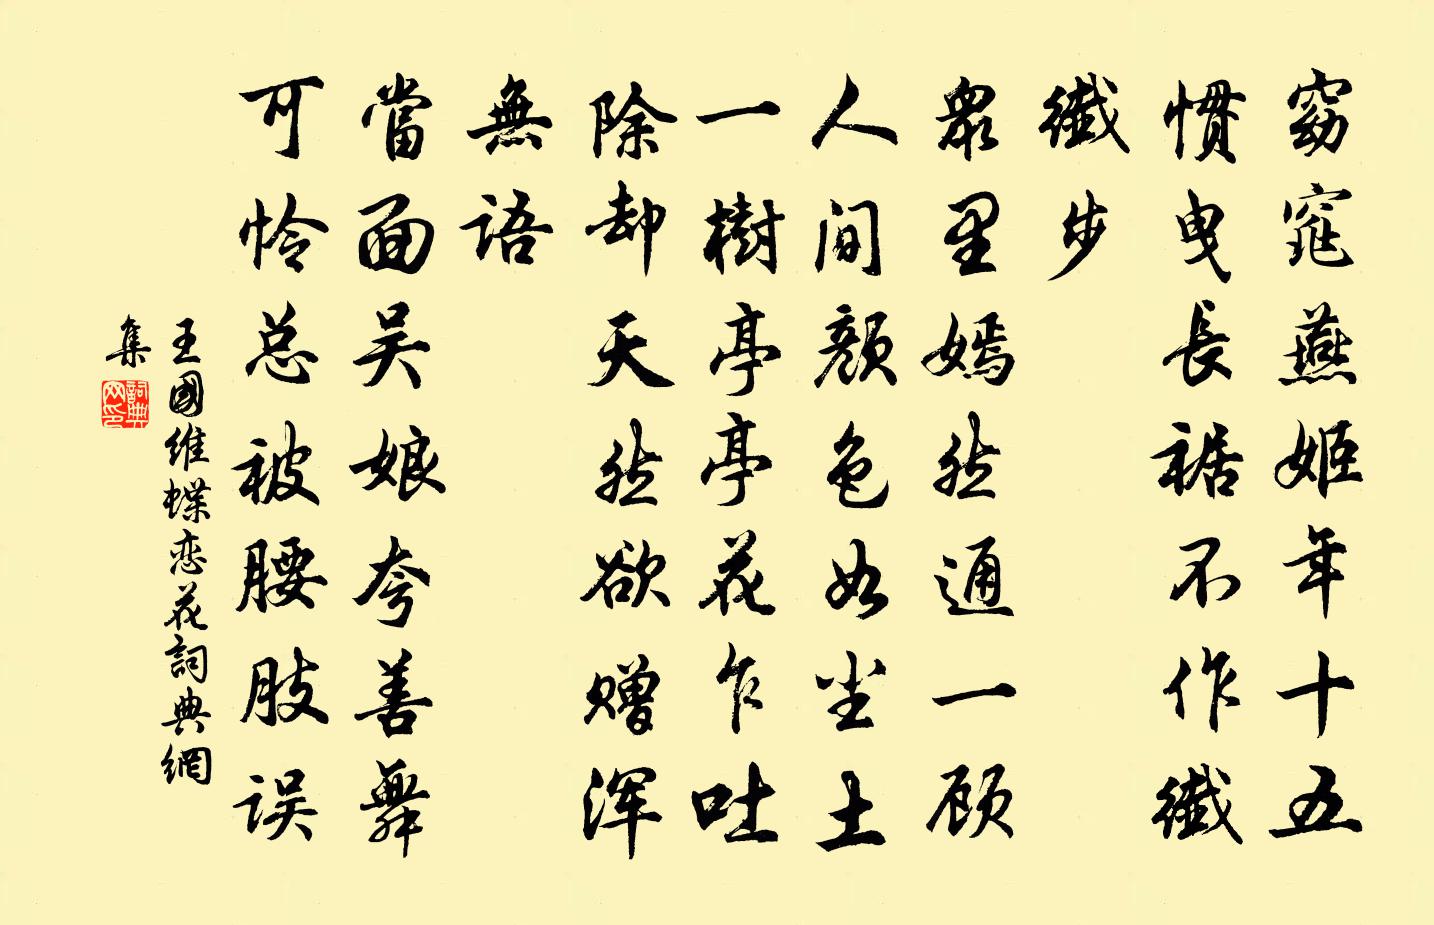 窈窕燕姬年十五
慣曳長裾不作纖
纖步
衆里嫣然通一顾
人间颜色如尘土
一樹亭亭花乍吐
除却天然欲赠浑
無语
當面吴娘夸善舞
可怜总被腰肢误
王國维蝶恋花詞典網
集
詞典网印